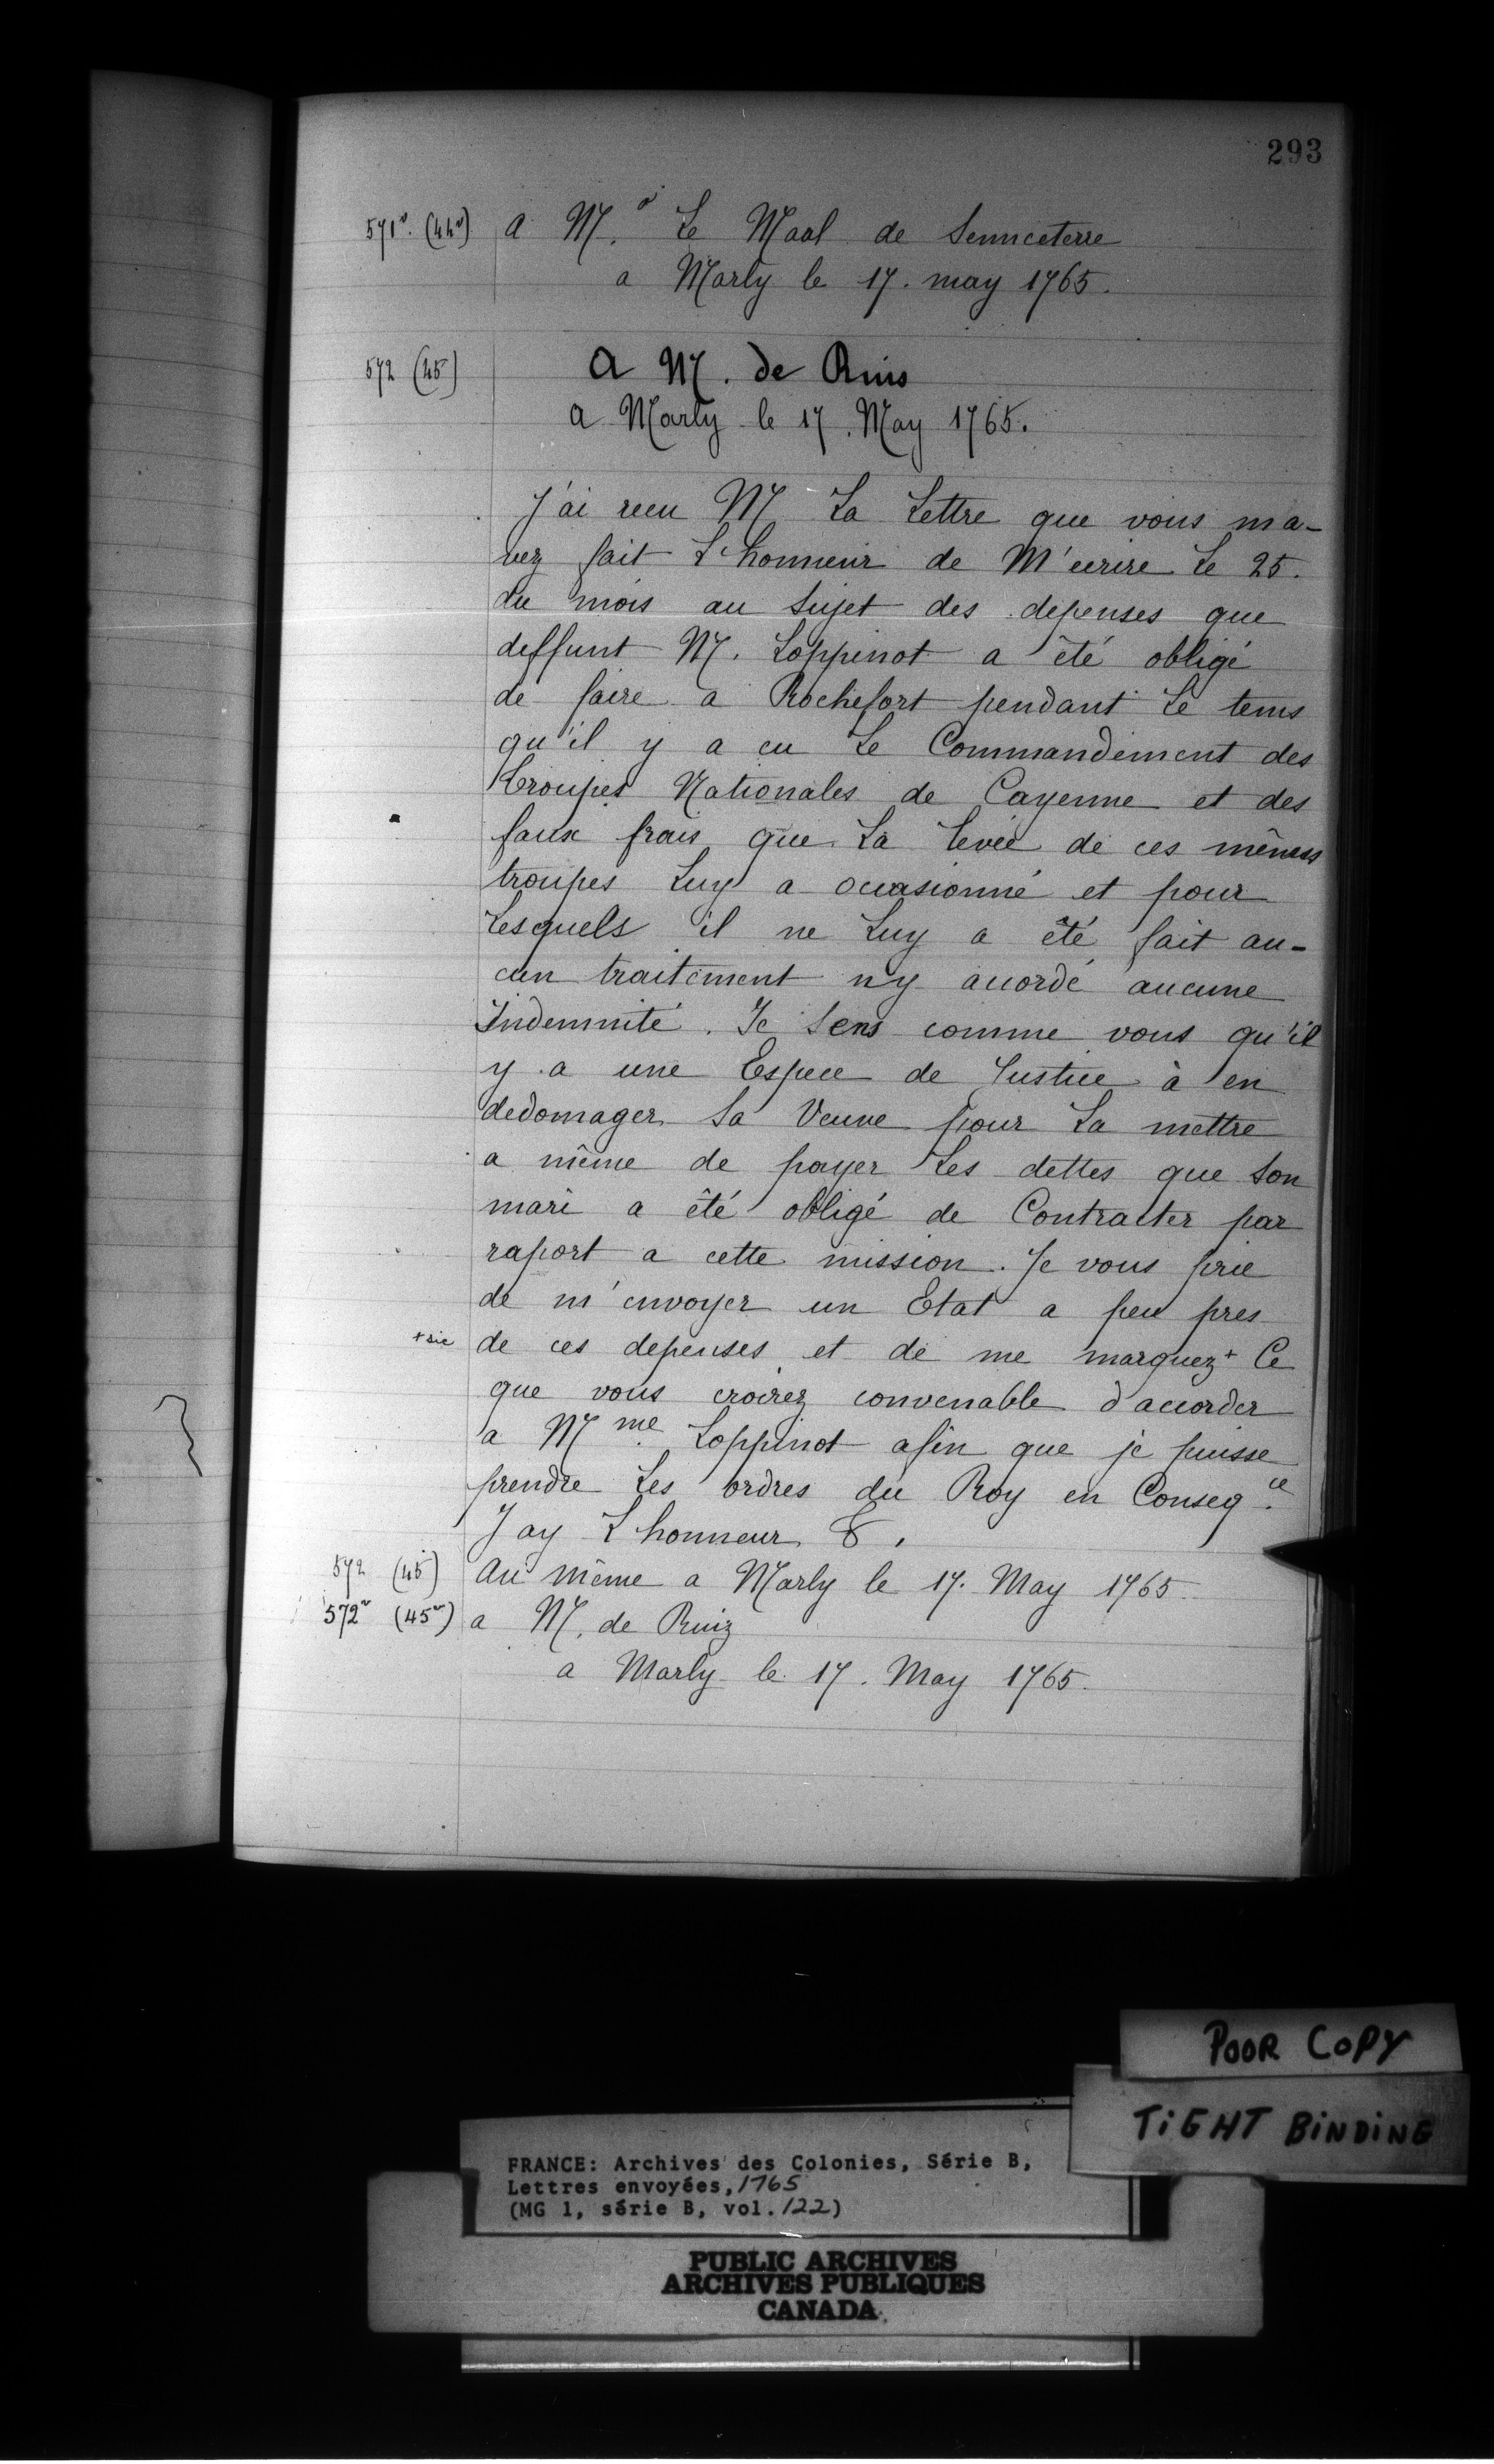 293
571v. (44v) a M.r Le Maal de Senneceterre
a Marly le 17. may 1765.
572 (45) A M. de Ruis
a Marly le 17. May 1765.
J'ai recu M La Lettre que vous ma-
vez fait L'honneur de M'ecrire Le 25.
du mois au Sujet des depenses que
deffunt M. Loppinot a été obligé
de faire a Rochefort pendant Le tems
qu'il y a eu Le Commandement des
troupes Nationales de Cayenne et des
faux frais que La Levée de ces mêmes
troupes Luy a occasionné et pour
Lesquels il ne Luy a été fait au-
cun traitement ny accordé aucune
Indemnité. Je Sens comme vous qu'il
y a une Espece de Justice à en
dedomager Sa Veuve pour La mettre
a même de payer Les dettes que Son
mari a été obligé de Contracter par
raport a cette mission. Je vous prie
de m'envoyer un Etat a peu pres
+ sic de ces depenses et de me marquez + Ce
que vous croirez convenable d'accorder
a Mme. Loppinot afin que je puisse
prendre Les ordres du Roy en Conseq.ce
Jay L'honneur &.
572 (45) Au même a Marly le 17. May 1765.
572v (45v) a M. de Ruiz
a Marly le 17. May 1765.
POOR COPY
TIGHT BINDING
FRANCE: Archives des Colonies, Série B,
Lettres envoyées, 1765
(MG 1, série B, vol. 122)
PUBLIC ARCHIVES
ARCHIVES PUBLIQUES
CANADA